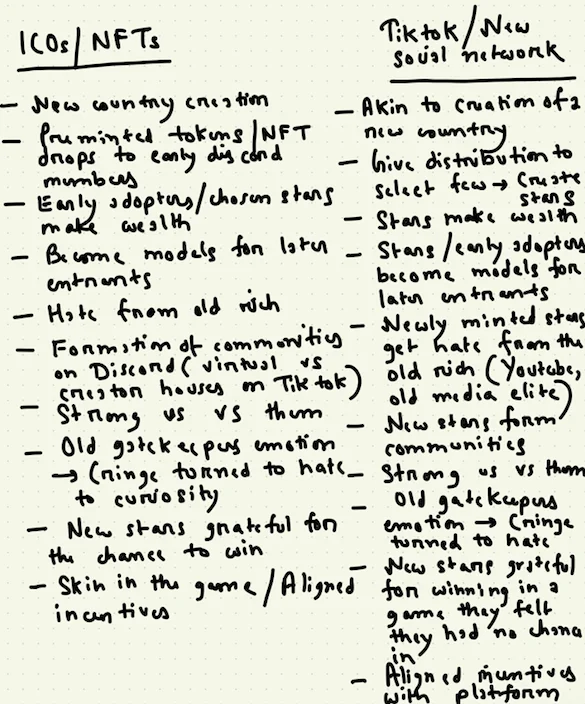 ICOs/NFTs
— New country creation
— Pre minted tokens/NFT
drops to early discord
members
— Early adopters/chosen stars
make wealth
— Become models for later
entrants
— Hate from old rich
— Formation of communities
on Discord (virtual vs
creator houses on Tiktok)
— Strong us vs them
— Old gatekeepers emotion
→ Cringe turned to hate
to curiosity
— New stars grateful for
the chance to win
— Skin in the game/Aligned
incentives
Tiktok/New
social network
— Akin to creation of a
new country
— Give distribution to
select few → Create
stars
— Stars make wealth
— Stars/early adopters
become models for
later entrants
— Newly minted stars
get hate from the
old rich (Youtube,
old media elite)
— New stars form
communities
— Strong us vs them
— Old gatekeepers
emotion → Cringe
turned to hate
— New stars grateful
for winning in a
game they felt
they had no chance
in
— Aligned incentives
with platform